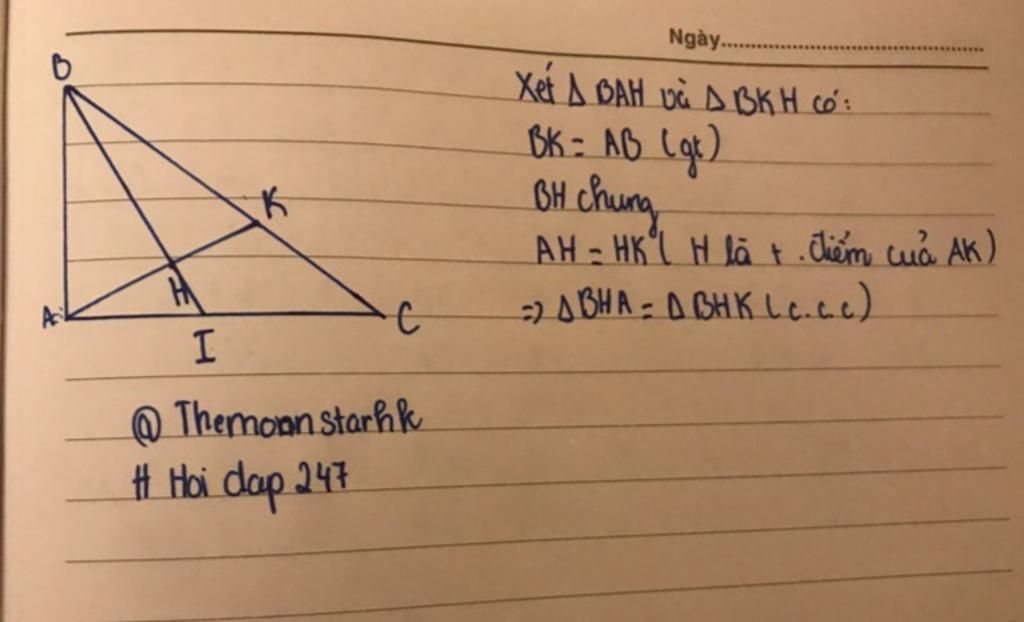 Ngày
B
K
A
H
C
I
Xét Δ BAH và Δ BKH có:
BK = AB (gt)
BH chung
AH = HK ( H là t.điểm cuả AK)
=> Δ BHA = Δ BHK (c.c.c)
@ Themoonstarhk
# Hoi dap 247